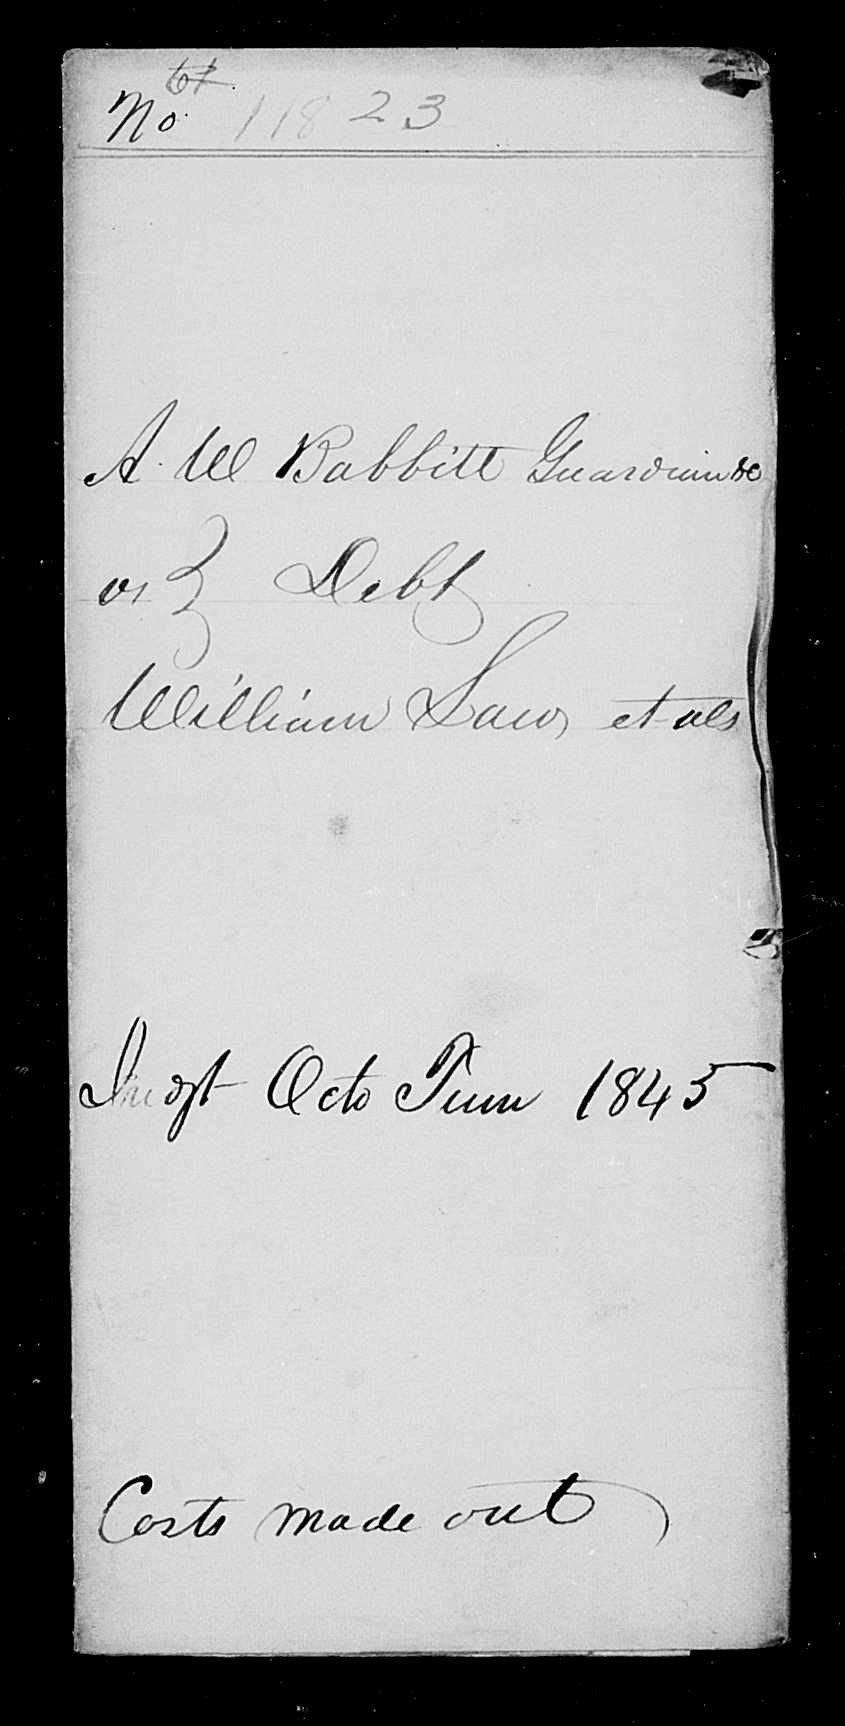 61
No. 11823
A. W Babbitt Guardian &c
vs } Debt
William Law, et als
Judgt Octo Term 1845
Costs made out